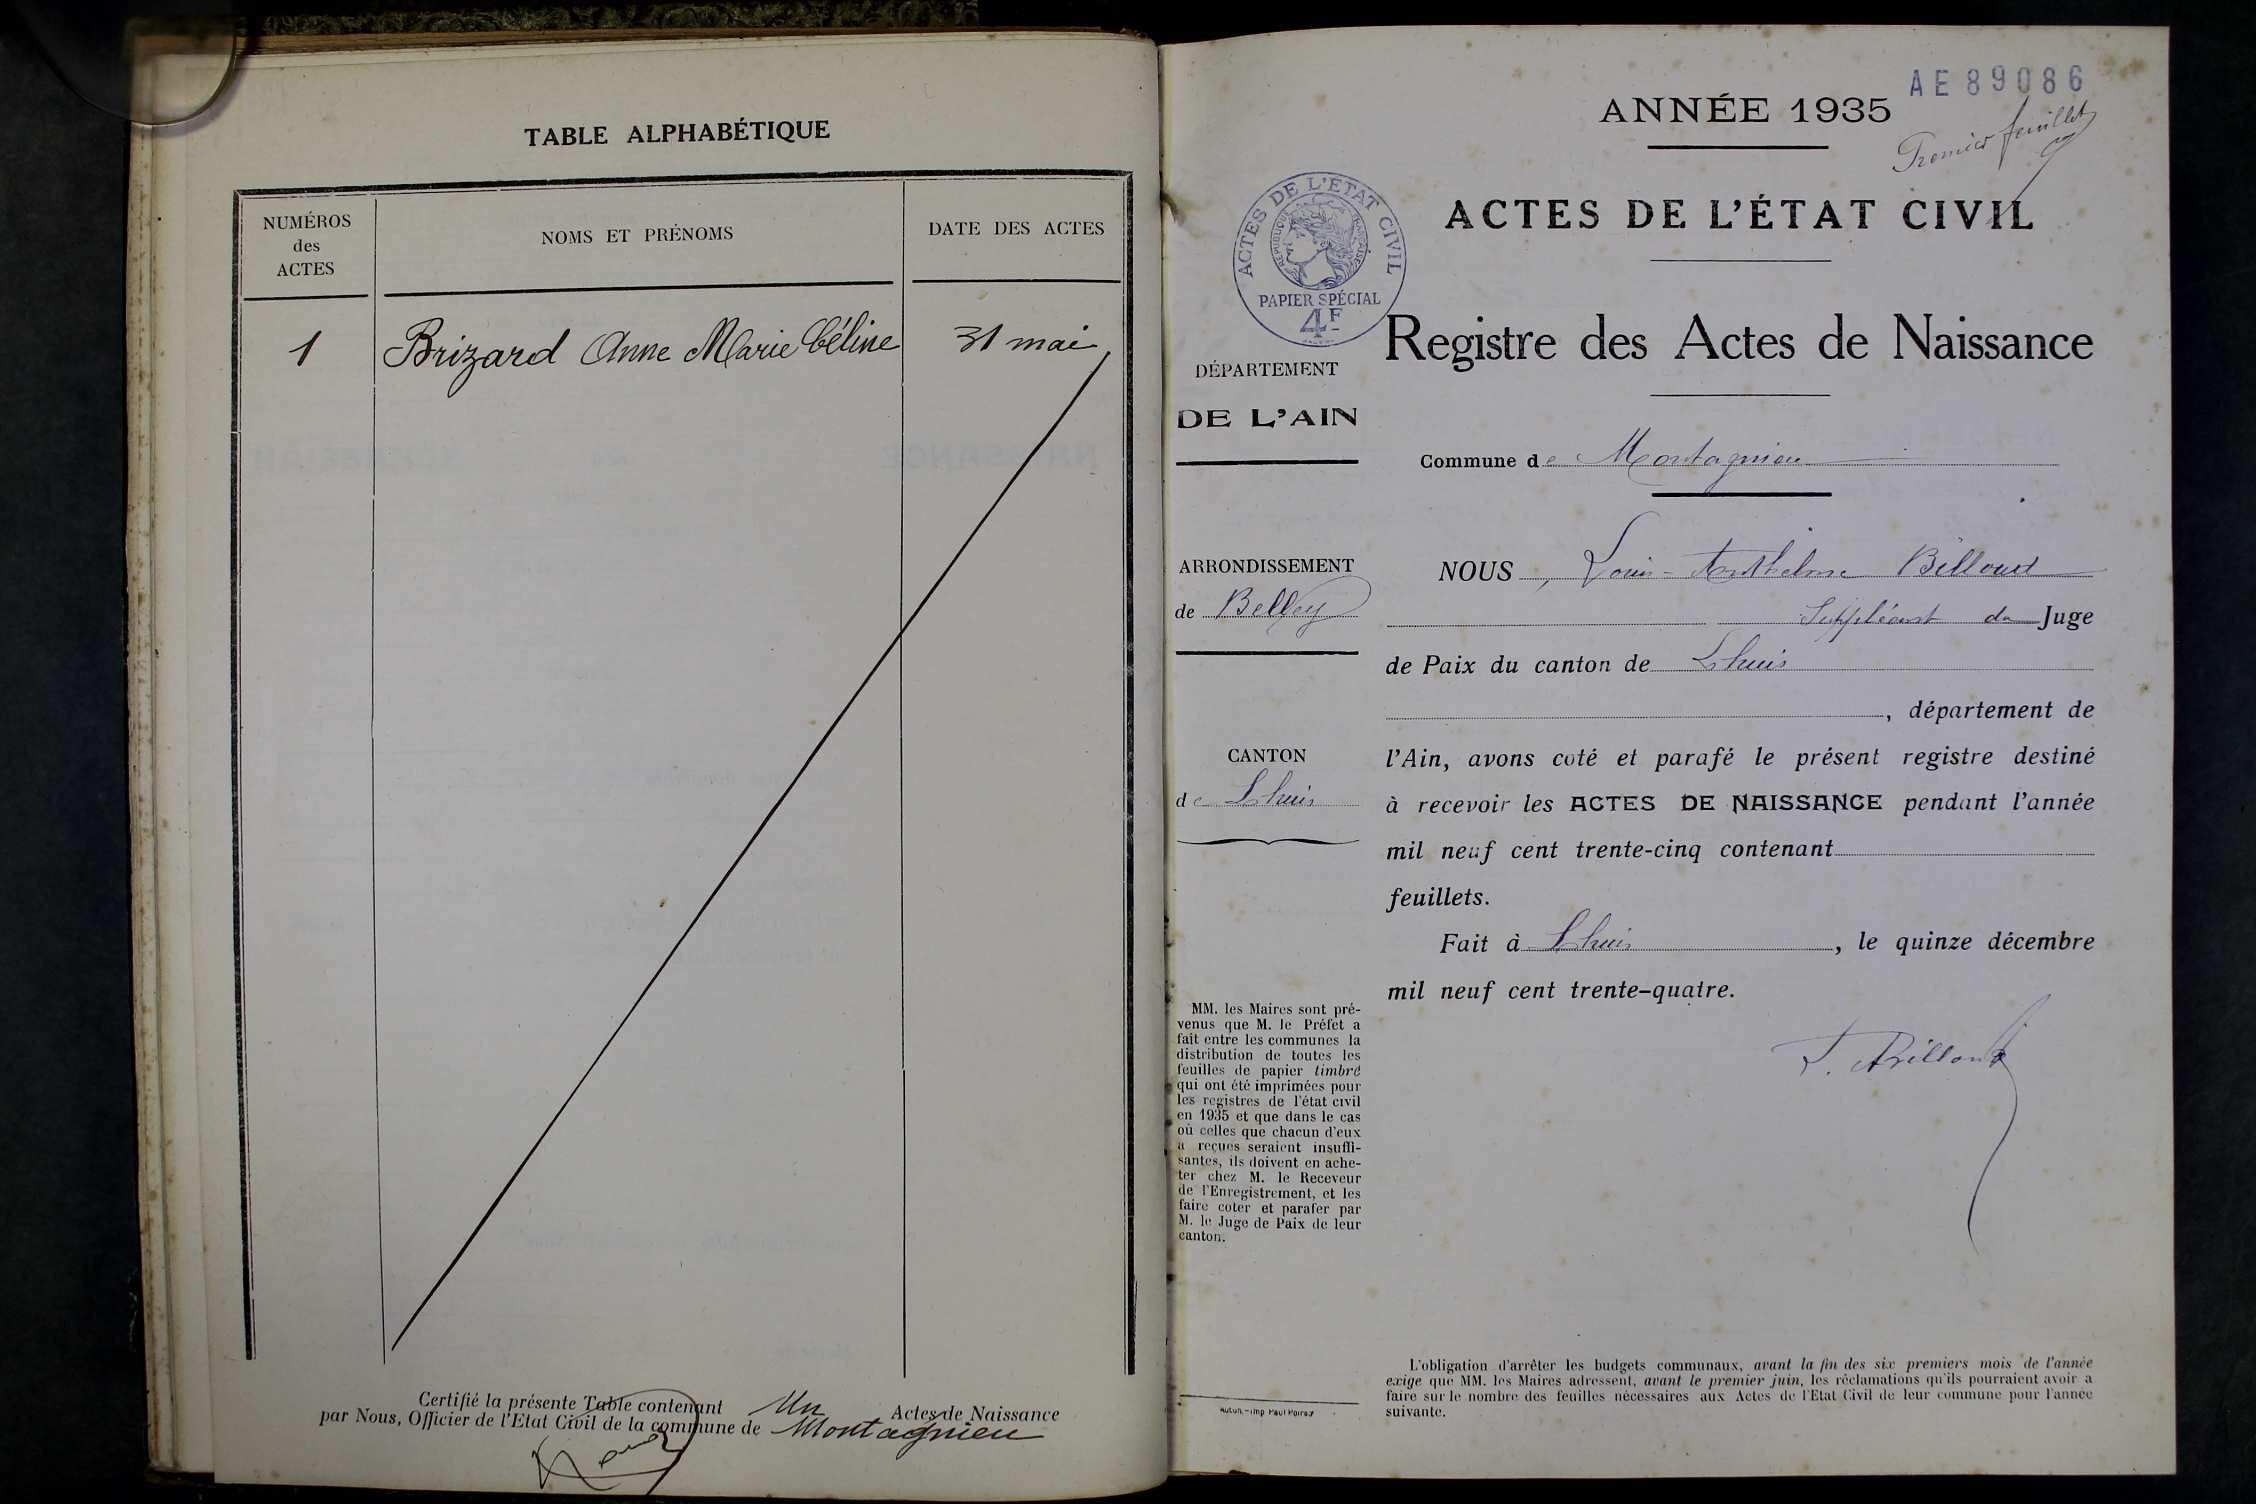 TABLE ALPHABÉTIQUE
NUMÉROS
des
ACTES
NOMS ET PRÉNOMS
DATE DES ACTES
1 Brizard Anne Marie Céline 31 mai
Certifié la présente Table contenant Un Actes de Naissance
par Nous, Officier de l'Etat Civil de la commune de Montagnieu
AE 89086
ANNÉE 1935
Premier feuillet
ACTES DE L'ÉTAT CIVIL
ACTES DE L'ETAT CIVIL
REPUBLIQUE FRANÇAISE
PAPIER SPÉCIAL
4F
Registre des Actes de Naissance
DÉPARTEMENT
DE L'AIN
Commune de Montagnieu
ARRONDISSEMENT
de Belley
CANTON
de Lhuis
NOUS, Louis-Anthelme Billoud
Suppléant du Juge
de Paix du canton de Lhuis
, département de
l'Ain, avons coté et parafé le présent registre destiné
à recevoir les ACTES DE NAISSANCE pendant l'année
mil neuf cent trente-cinq contenant
feuillets.
Fait à Lhuis, le quinze décembre
mil neuf cent trente-quatre.
MM. les Maires sont pré-
venus que M. le Préfet a
fait entre les communes la
distribution de toutes les
feuilles de papier timbré
qui ont été imprimées pour
les registres de l'état civil
en 1935 et que dans le cas
où celles que chacun d'eux
a reçues seraient insuffi-
santes, ils doivent en ache-
ter chez M. le Receveur
de l'Enregistrement, et les
faire coter et parafer par
M. le Juge de Paix de leur
canton.
L. Billoud
L'obligation d'arrêter les budgets communaux, avant la fin des six premiers mois de l'année
exige que MM. les Maires adressent, avant le premier juin, les réclamations qu'ils pourraient avoir à
faire sur le nombre des feuilles nécessaires aux Actes de l'Etat Civil de leur commune pour l'année
suivante.